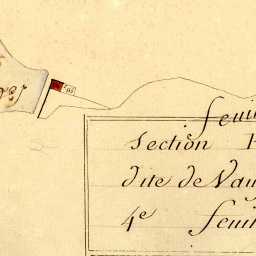 feui
section
dite de Vau
4e feui